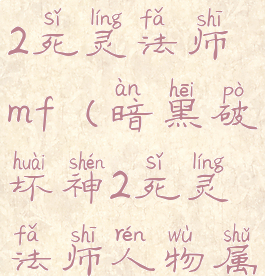 sǐ líng fǎ shī
2死灵法师
àn hēi pò
mf（暗黑破
huài shén sǐ líng
坏神2死灵
fǎ shī rén wù shǔ
法师人物属